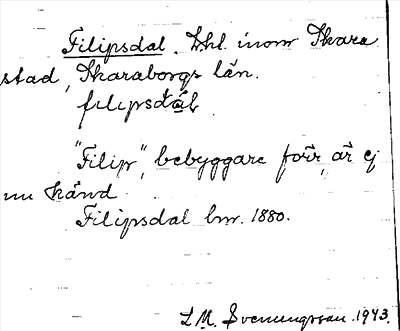 Filipsdal. Lhl. inom Skara
stad, Skaraborgs län.
filipsdal
"Filip", bebyggare förr, är ej
nu känd.
Filipsdal bnr. 1880.
L.M. Svenungsson. 1943.